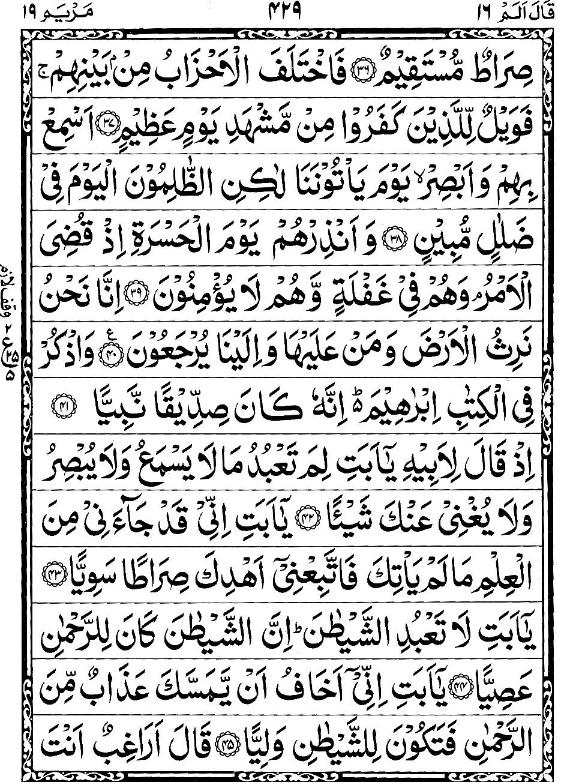 قَالَ اَلَمْ ١٦ ٤٢٩ مَرْيَم ١٩
صِرَاطٌ مُّسْتَقِيْمٌ ﴿٣٦﴾ فَاخْتَلَفَ الْاَحْزَابُ مِنْۢ بَيْنِهِمْ ۚ
فَوَيْلٌ لِّلَّذِيْنَ كَفَرُوْا مِنْ مَّشْهَدِ يَوْمٍ عَظِيْمٍ ﴿٣٧﴾ اَسْمِعْ
بِهِمْ وَاَبْصِرْ ۙ يَوْمَ يَاْتُوْنَنَا لٰكِنِ الظّٰلِمُوْنَ الْيَوْمَ فِيْ
ضَلٰلٍ مُّبِيْنٍ ﴿٣٨﴾ وَاَنْذِرْهُمْ يَوْمَ الْحَسْرَةِ اِذْ قُضِيَ
الْاَمْرُ ۘ وَهُمْ فِيْ غَفْلَةٍ وَّهُمْ لَا يُؤْمِنُوْنَ ﴿٣٩﴾ اِنَّا نَحْنُ
نَرِثُ الْاَرْضَ وَمَنْ عَلَيْهَا وَاِلَيْنَا يُرْجَعُوْنَ ﴿٤٠﴾ ع وَاذْكُرْ
فِي الْكِتٰبِ اِبْرٰهِيْمَ ؕ اِنَّهٗ كَانَ صِدِّيْقًا نَّبِيًّا ﴿٤١﴾
اِذْ قَالَ لِاَبِيْهِ يٰۤاَبَتِ لِمَ تَعْبُدُ مَا لَا يَسْمَعُ وَلَا يُبْصِرُ
وَلَا يُغْنِيْ عَنْكَ شَيْـًٔا ﴿٤٢﴾ يٰۤاَبَتِ اِنِّيْ قَدْ جَآءَنِيْ مِنَ
الْعِلْمِ مَا لَمْ يَاْتِكَ فَاتَّبِعْنِيْۤ اَهْدِكَ صِرَاطًا سَوِيًّا ﴿٤٣﴾
يٰۤاَبَتِ لَا تَعْبُدِ الشَّيْطٰنَ ؕ اِنَّ الشَّيْطٰنَ كَانَ لِلرَّحْمٰنِ
عَصِيًّا ﴿٤٤﴾ يٰۤاَبَتِ اِنِّيْۤ اَخَافُ اَنْ يَّمَسَّكَ عَذَابٌ مِّنَ
الرَّحْمٰنِ فَتَكُوْنَ لِلشَّيْطٰنِ وَلِيًّا ﴿٤٥﴾ قَالَ اَرَاغِبٌ اَنْتَ
وقف لازم